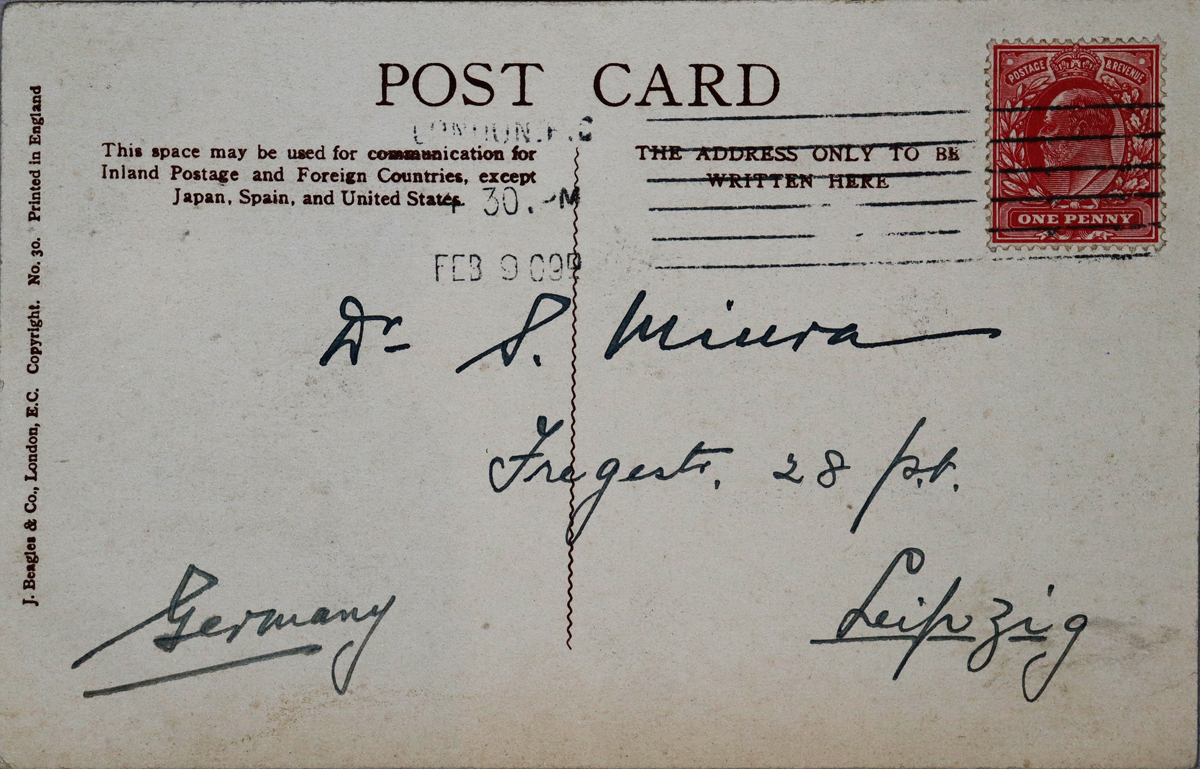 POST CARD
POSTAGE & REVENUE
LONDON. F.S
This space may be used for communication for
Inland Postage and Foreign Countries, except
Japan, Spain, and United States.
THE ADDRESS ONLY TO BE
WRITTEN HERE
ONE PENNY
30. M
FEB 9 09
Dr S. Miura
Fregestr. 28 pt.
Leipzig
Germany
J. Beagles & Co., London, E.C. Copyright. No. 30. Printed in England